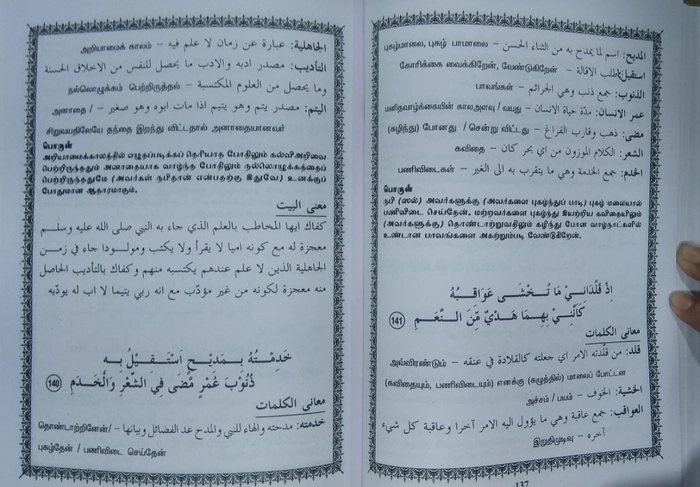 الجاهلية: عبارة عن زمان لا علم فيه – அறியாமைக் காலம்
التأديب: مصدر ادبه والادب ما يحصل للنفس من الاخلاق الحسنة
وما يحصل من العلوم المكتسبة – நல்லொழுக்கம் பெற்றிருத்தல்
اليتم: مصدر يتم وهو يتيم اذا مات ابوه وهو صغير – / அனாதை
சிறுவயதிலேயே தந்தை இறந்து விட்டதால் அனாதையானவர்
பொருள்
அறியாமைக்காலத்தில் எழுதப்படிக்கத் தெரியாத போதிலும் கல்விஅறிவை
பெற்றிருந்ததும் அனாதையாக வாழ்ந்த போதிலும் நல்லொழுக்கத்தைப்
பெற்றிருந்ததுமே (அவர்கள் நபிதான் என்பதற்கு இதுவே) உனக்குப்
போதுமான ஆதாரமாகும்.
معنى البيت
كفاك ايها المخاطب بالعلم الذي جاء به النبي صلى الله عليه وسلم
معجزة له مع كونه اميا لا يقرأ ولا يكتب ومولودا جاء في زمن
الجاهلية الذين لا علم عندهم يكتسبه منهم وكفاك بالتأديب الحاصل
منه معجزة لكونه من غير مؤدّب مع انه ربي يتيما لا اب له يودّبه
خَدِمْتُهُ بِمَدِيْحٍ اَسْتَقِيْلُ بِهِ
ذُنُوْبَ عُمْرٍ مَّضٰى فِي الشِّعْرِ وَالْخَدَمِ 140
معانى الكلمات
خدمته: مدحته والهاء للنبي والمدح عد الفضائل وبيانها – / தொண்டாற்றினேன்
புகழ்தேன் / பணிவிடை செய்தேன்
المديح: اسم لما يمدح به من الثناء الحسن – புகழ்மாலை, புகழ் பாமாலை
استقيل: طلب الاقالة – கோரிக்கை வைக்கிறேன், வேண்டுகிறேன்
الذنوب: جمع ذنب وهي الجرائم – பாவங்கள்
عمر الانسان: مدّة حياة الانسان – மனிதவாழ்க்கையின் காலஅளவு / வயது
مضى: ذهب وقارب الفراغ – (கழிந்து) போனது / சென்று விட்டது
الشعر: الكلام الموزون من اي بحر كان – கவிதை
الخدم: جمع الخدمة وهي ما يتقرب به الى الغير – பணிவிடைகள்
பொருள்
நபி (ஸல்) அவர்களுக்கு (அவர்களை புகழ்ந்துப் பாடி) புகழ் மலையால்
பணிவிடை செய்தேன். மற்றவர்களை புகழ்ந்து இயற்றிய கவிதையிலும்
(அவர்களுக்கு) தொண்டாற்றுவதிலும் கழிந்து போன வாழ்நாட்களில்
உண்டான பாவங்களை அகற்றும்படி வேண்டுகிறேன்.
اِذْ قَلَّدَانِيَ مَا تُخْشٰى عَوَاقِبُهُ
كَأَنَّنِيْ بِهِمَا هَدْيٌ مِّنَ النَّعَمِ 141
معانى الكلمات
قلد: من قلّدته الامر اي جعلته كالقلادة في عنقه – அவ்விரண்டும்
(கவிதையும், பணிவிடையும்) எனக்கு (கழுத்தில்) மாலைப் போட்டன
الخشية: الخوف – அச்சம் / பயம்
العواقب: جمع عاقبة وهي ما يؤول اليه الامر آخرا وعاقبة كل شيء
آخره – இறுதிமுடிவு
137